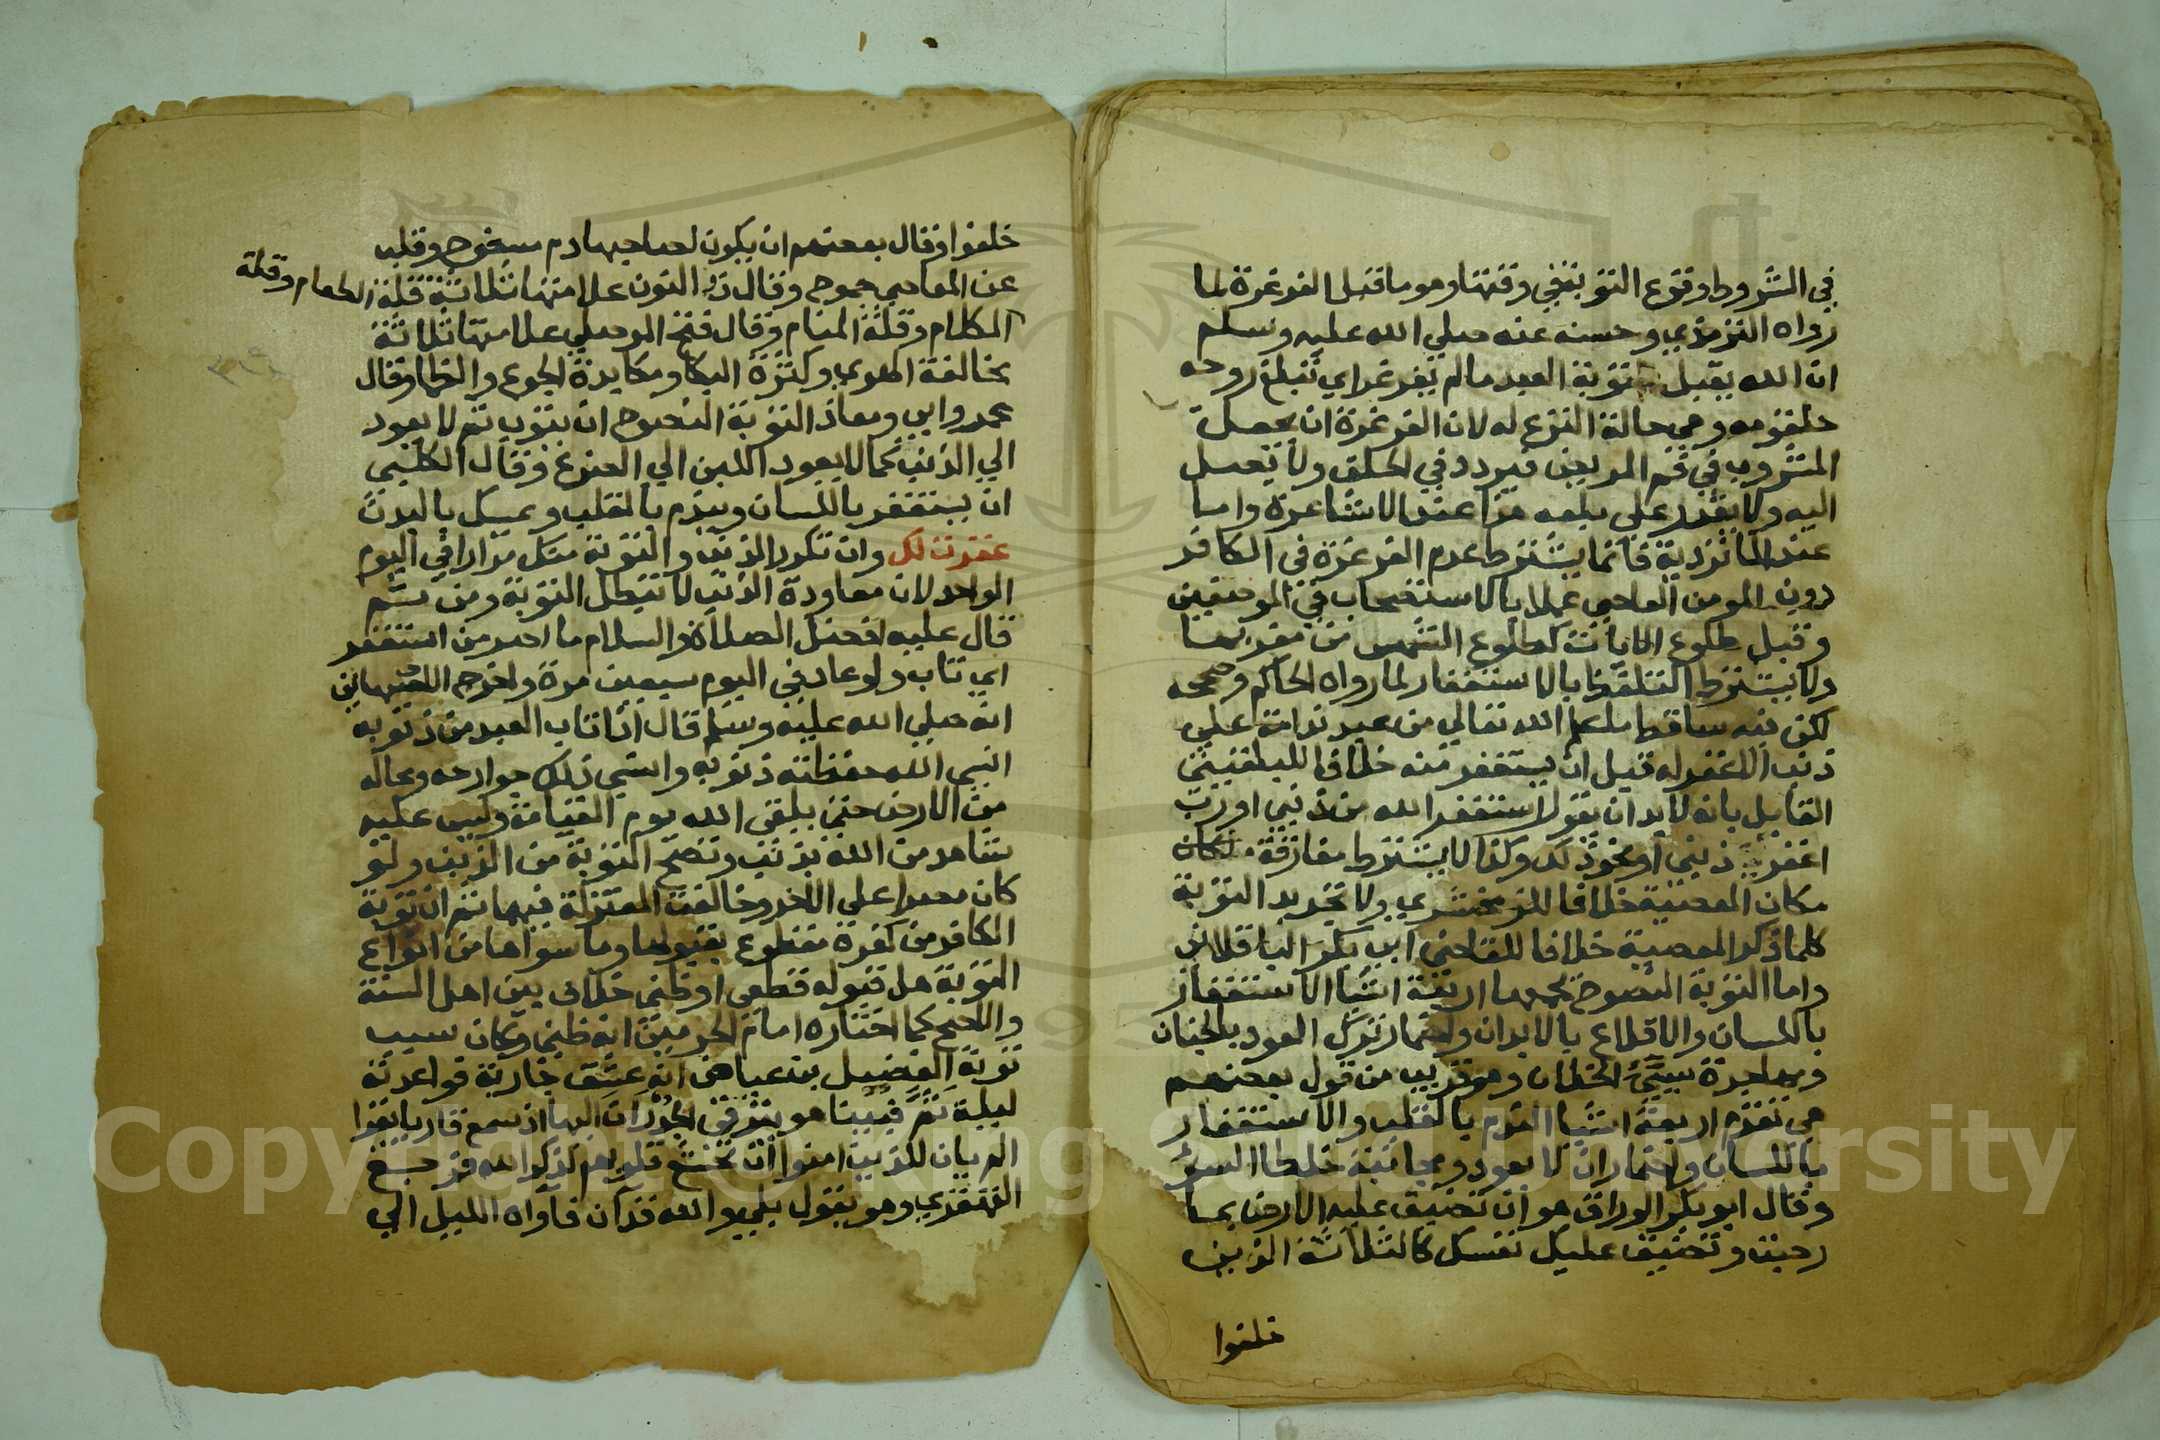 في الشروط وقوع التوبة في وقتها وهو ما قبل الغرغرة لما
رواه الترمذي وحسنه عنه صلي الله عليه وسلم
ان الله يقبل توبة العبد ما لم يغرغر اي تبلغ روحه
حلقومه وهي حالة النزع له لان الغرغرة ان يجعل
المشروب في فم المريض فيردد في الحلق ولا يصل
اليه ولا يقدر علي بلعه هذا عند الاشاعرة واما
عند الماتردية فانما يشترط عدم الغرغرة في الكافر
دون المومن العاصي عملا بالاستصحاب في الموضعين
وقبل طلوع الايات كطلوع الشمس من مغربها
ولا يشترط التلفظ بالاستغفار لما رواه الحاكم وصححه
لكن فيه ساقط ما علم الله تعالي من عبد ندامة علي
ذنب الا غفر له قبل ان يستغفر منه خلافا للبلقيني
القايل بانه لا بد ان يقول استغفر الله من ذنبي او رب
اغفر ذنبي او نحو ذلك وكذا لا يشترط مفارقة مكان
مكان المعصية خلافا للزمخشري ولا تجديد التوبة
كلما ذكر المعصية خلافا للقاضي ابي بكر الباقلاني
واما التوبة النصوح يجمعها اربعة اشيا الاستغفار
باللسان والاقلاع بالابدان واضمار ترك العود بالجنان
ومهاجرة سيئ الخلان وهو قريب من قول بعضهم
هي تقدم اربعة اشيا الندم بالقلب والاستغفار
باللسان واضمار ان لا يعود ومجانبة خلطا السوء
وقال ابو بكر الوراق هو ان تضيق عليه الارض بما
رحبت وتضيق عليك نفسك كالثلاثة الذين
خلفوا
خلفوا وقال بعضهم ان يكون لصاحبها دم سفوح وقلب
عن المعاصي جموح وقال ذو النون علامتها ثلاثة قلة الطعام وقلة
الكلام وقلة المنام وقال فتح الموصلي علامتها ثلاثة
مخالفة الهوي وكثرة البكا ومكابدة الجوع والظما وقال
عمر وابي ومعاذ التوبة النصوح ان يتوب ثم لا يعود
الي الذنب كما لا يعود اللبن الي الضرع وقال الكلبي
ان يستغفر باللسان ويندم بالقلب ويمسك بالبدن
غفرت لك وان تكرر الذنب والتوبة منك مرارا في اليوم
الواحد لان معاودة الذنب لا تبطل التوبة ومن ثم
قال عليه افضل الصلاة والسلام ما اصر من استغفر
اي تاب ولو عاد في اليوم سبعين مرة واخرج الاصبهاني
انه صلي الله عليه وسلم قال اذا تاب العبد من ذنوبه
انسي الله حفظته ذنوبه وانسي ذلك جوارحه ومعالمه
من الارض حتي يلقي الله يوم القيامة وليس عليه
شاهد من الله بذنب وتصح التوبة من الذنب ولو
كان مصرا علي الاخر وخالفت المعتزلة فيها ثم ان توبة
الكافر من كفره مقطوع بقبولها وما سواها من انواع
التوبة هل قبوله قطعي او ظني خلاف بين اهل السنة
والاصح كما اختاره امام الحرمين انه ظني وكان سبب
توبة الفضيل بن عياض انه عشق جارية فواعدته
ليلة ثم فبينا هو يرتقي الجدران اليها اذ سمع قاريا يقرا
الم يان للذين امنوا ان تخشع قلوبهم لذكر الله فرجع
القهقري وهو يقول بلي والله قد ان فاواه الليل الي